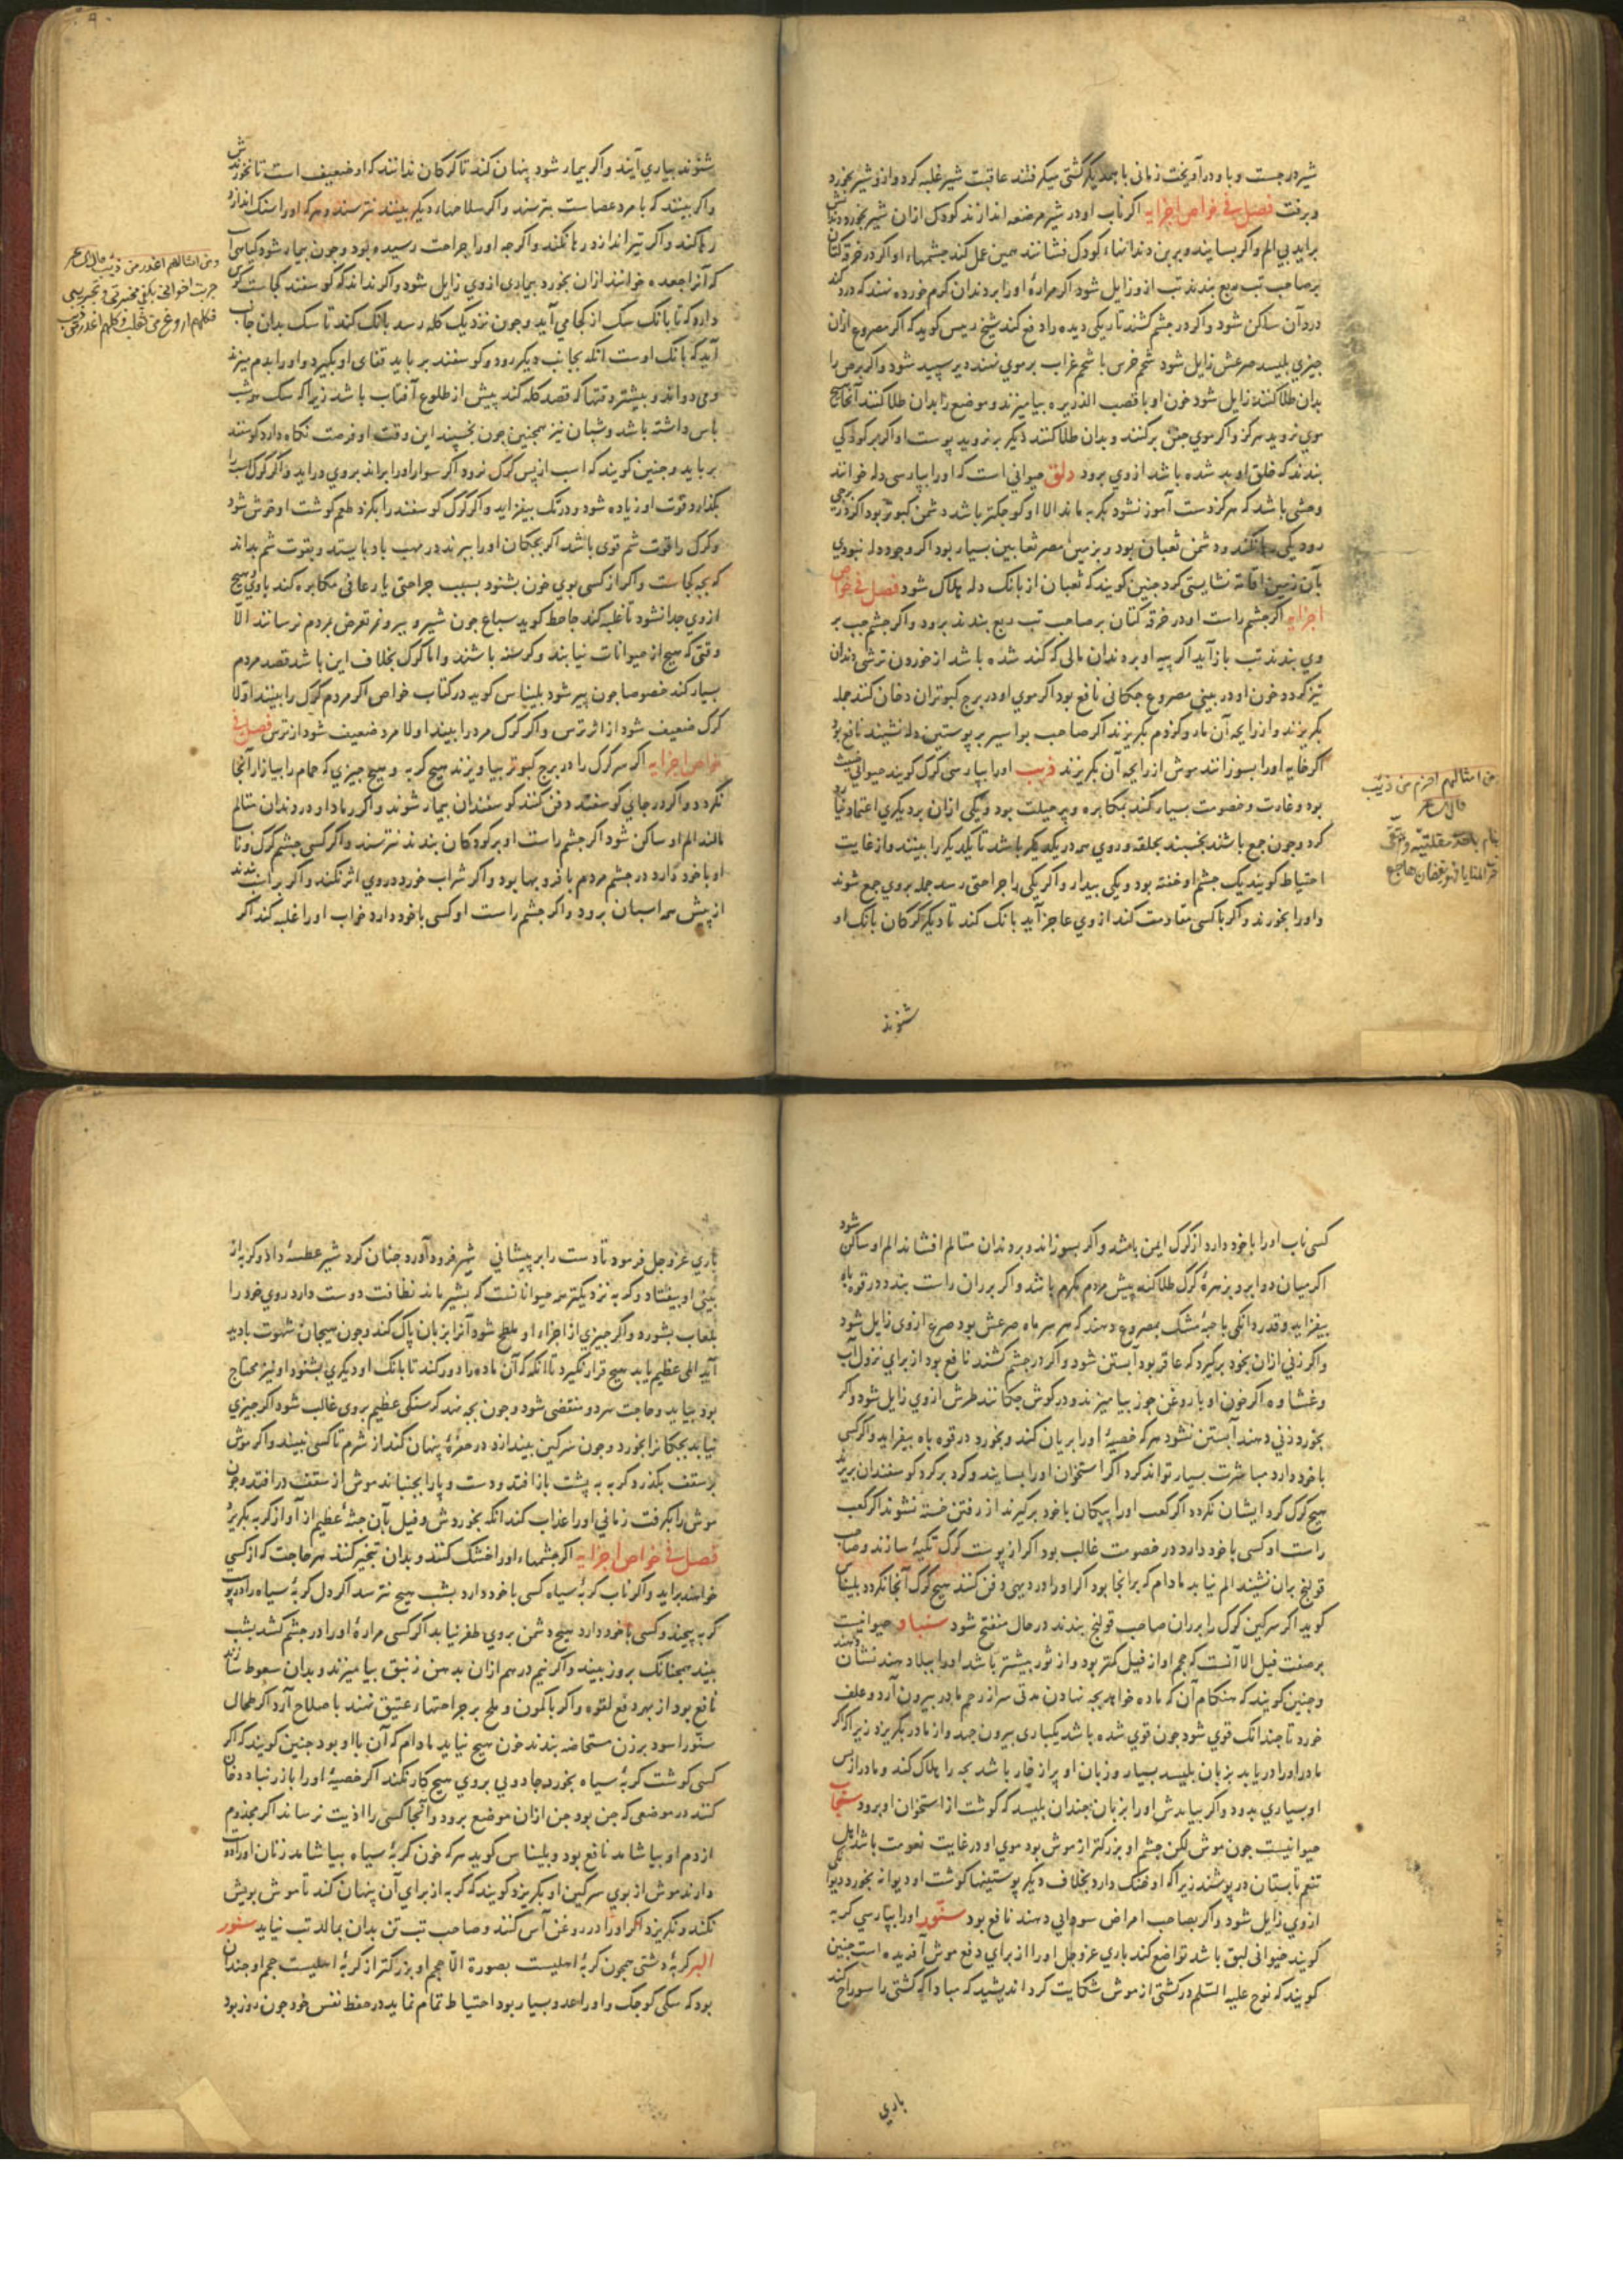 شیر در جست و با او در آویخت زمانی با یکدیگر کشتی میکرفتند عاقبت شیر غلبه کرد و از و شیر بخورد
و برفت فصل فی خواص اجزایه اکر ناب او در شیر مرضعه اندازند کودک ازان شیر بخورد دندانش
برآید بی الم و اکر بسایند و بر بن دندانهاء کودک فشانند همین عمل کند چشمهاء او اکر در خرقه کتان
بر صاحب تب ربع بندند تب ازو زایل شود اکر مرارهٔ او را بر دندان کرم خورده نهند که درد کند
درد آن ساکن شود و اکر در چشم کشند تاریکی دیده را دفع کند شیخ رییس کوید که اکر مصروع ازان
چیزی بلیسد صرعش زایل شود شحم خرس با شحم غراب بر موی نهند دیر سپید شود و اکر برص را
بدان طلا کنند زایل شود خون او با قصب الذریره بیامیزند و موضع را بدان طلا کنند آنجا هیچ
موی نروید هرکز و اکر موی جفن برکنند و بدان طلا کنند دیکر برنروید پوست او اکر بر کودکی
بندند که خلق او بد شده باشد از وی برود دلق حیوانی است که او را بپارسی دله خوانند
وحشی باشد که هرکز دست آموز نشود بکربه ماند الا او کوچکتر باشد دشمن کبوتر بود اکر در برجی
رود یکی رها نکند و دشمن ثعبان بود و بزمین مصر ثعابین بسیار بود اکر وجود دله نبودی
بآن زمین اقامة نشایستی کرد چنین کویند که ثعبان از بانک دله هلاک شود فصل فی خواص
اجزایه اکر چشم راست او در خرقه کتان بر صاحب تب ربع بندند برود و اکر چشم چپ بر
وی بندند تب باز آید اکر پیه او بر دندان مالی که کند شده باشد از خوردن ترشی دندان
تیز کردد خون او در بینی مصروع چکانی نافع بود اکر موی او در برج کبوتران دخان کنند جمله
بکریزند و از رایحه آن مار و کژدم بکریزند اکر صاحب بواسیر بر پوستین دله نشیند نافع بود
اکر خایه او را بسوزانند موش از رایحه آن بکریزند ذیب او را بپارسی کرک کویند حیوانی خبیث
بود و غارت و خصومت بسیار کند بمکابره و پرحیلت بود و یکی ازان بر دیکری اعتماد نتواند
کرد و چون جمع باشند بخسبند بحلقه و روی همه در یکدیکر باشد تا یکدیکر را بینند و از غایت
احتیاط کویند یک چشم او خفته بود و یکی بیدار و اکر یکی را جراحتی رسد جمله بروی جمع شوند
و او را بخورند و اکر با کسی مقاومت کند از وی عاجز آید بانک کند تا دیکر کرکان بانک او
شنوند
من امثالهم احزم من ذیب
قال الشاعر
ینام باحدی مقلتیه و یتقی
باخری المنایا فهو یقظان هاجع
شنوند بیاری آیند و اکر بیمار شود پنهان کند تا کرکان ندانند که او ضعیف است تا نخورندش
و اکر بینند که با مرد عصا ست بترسند و اکر سلاحهاء دیکر بینند نترسند و هر که او را سنک اندازد
رها کند و اکر تیر اندازد رها نکند و اکرچه او را جراحت رسیده بود و چون بیمار شود کیاهی است
که آنرا جعده خوانند ازان بخورد بیماری ازوی زایل شود و اکر نداند که کوسفند کجاست کوش
دارد که تا بانک سک از کجا می آید و چون نزدیک کله رسد بانک کند تا سک بدان جانب
آید که بانک اوست آنکه بجانب دیکر رود و کوسفند برباید قفای او بکیرد و او را بدم میزند
و می دواند و بیشتر وقتها که قصد کله کند پیش از طلوع آفتاب باشد زیرا که سک همه شب
پاس داشته باشد و شبان نیز همچنین چون بخسپند این وقت او فرصت نکاه دارد کوسفند
برباید و چنین کویند که اسب از پس کرک نرود اکر سوار او را براند بروی درآید و اکر کرک اسب را
بکذارد قوت او زیاده شود و در تک بیفزاید و اکر کرک کوسفند را بکزد طعم کوشت او خوش شود
و کرک را قوت شم قوی باشد اکر بچکان او را ببرند در مهب باد بایستد و بقوت شم بداند
که بچه کجاست و اکر از کسی بوی خون بشنود بسبب جراحتی یا رعافی مکابره کند با وی هیچ
از وی جدا نشود تا غلبه کند جاحظ کوید سباع چون شیر و ببر و نمر تعرض مردم نرسانند الا
وقتی که هیچ از حیوانات نیابند و کرسنه باشند و اما کرک بخلاف این باشد قصد مردم
بسیار کند خصوصا چون پیر شود بلیناس کوید در کتاب خواص اکر مردم کرک را بینند اولا
کرک ضعیف شود از اثر ترس و اکر کرک مرد را بیند اولا مرد ضعیف شود از ترس فصل فی
خواص اجزایه اکر سر کرک را در برج کبوتر بیاویزند هیچ کربه و هیچ چیزی که حمام را بیازارد آنجا
نکردد و اکر در جای کوسفند دفن کنند کوسفندان بیمار شوند و اکر رماد او در دندان متالم
مالند الم او ساکن شود اکر چشم راست او بر کودکان بندند نترسند و اکر کسی چشم کرک و ناب
او با خود دارد در چشم مردم با فر و بها بود و اکر شراب خورد در وی اثر نکند و اکر بر اسب بندند
از پیش همه اسبان برود و اکر چشم راست او کسی با خود دارد خواب او را غلبه کند اکر
و من امثالهم اغدر من ذیب قال الشاعر
فکلهم اروغ من ثعلب و کلهم اغدر من ذیب
کسی ناب او را با خود دارد از کرک ایمن باشد و اکر بسوزاند و بر دندان متالم افشاند الم او ساکن شود
اکر میان دو ابرو بزهرهٔ کرک طلا کند پیش مردم مکرم باشد و اکر بر ران راست بندد در قوه باه
بیفزاید و قدر دانکی با حبهٔ مشک بمصروع دهند که هر سر ماه صرعش بود صرع ازوی زایل شود
و اکر زنی ازان بخود برکیرد که عاقر بود آبستن شود و اکر در چشم کشند نافع بود از برای نزول آب
و غشاوه اکر خون او با روغن جوز بیامیزند و در کوش چکانند طرش ازوی زایل شود و اکر
بخورد زنی دهند آبستن نشود هر که خصیهٔ او را بریان کند و بخورد در قوه باه بیفزاید و اکر کسی
با خود دارد مباشرت بسیار تواند کرد اکر استخوان او را بسایند و کرد بر کرد کوسفندان بریزند
هیچ کرک کرد ایشان نکردد اکر کعب او را پیکان با خود برکیرند از رفتن خسته نشوند اکر کعب
راست او کسی با خود دارد در خصومت غالب بود اکر از پوست کرک تکیهٔ سازند و صاحب
قولنج بران نشیند الم نیابد مادام که بر آنجا بود اکر او را در دیهی دفن کنند هیچ کرک آنجا نکردد بلیناس
کوید اکر سرکین کرک را بر ران صاحب قولنج بندند در حال منفتح شود سنباد حیوانیست
بر صفت فیل الا آنست که حجم او از فیل کمتر بود و از ثور بیشتر باشد او را ببلاد هند نشان دهند
و چنین کویند که هنکام آن که ماده خواهد بچه نهادن مدتی سر از رحم مادر بیرون آرد و علف
خورد تا چندانک قوی شود چون قوی شده باشد یکباری بیرون جهد و از مادر بکریزد زیرا که اکر
مادر او را دریابد بزبان بلیسد بسیار و زبان او پر از خار باشد بچه را هلاک کند و مادر از پس
او بسیاری بدود و اکر بیابدش او را بزبان چندان بلیسد که کوشت از استخوان او برود سنجاب
حیوانیست چون موش لکن چشم او بزرکتر از موش بود موی او در غایت نعومت باشد اهل
تنعم تابستان درپوشند زیرا که او خنک دارد بخلاف دیکر پوستینها کوشت او دیوانه بخورد دیوانکی
ازوی زایل شود و اکر بصاحب امراض سودایی دهند نافع بود سنور او را بپارسی کربه
کویند حیوانی لبق باشد تواضع کند باری عز و جل او را از برای دفع موش آفریده است چنین
کویند که نوح علیه السلم در کشتی از موش شکایت کرد اندیشید که مبادا که کشتی را سوراخ کند
باری
باری عز و جل فرمود تا دست را بر پیشانی شیر فرود آورد چنان کرد شیر عطسهٔ داد و کربه از
بینی او بیفتاد و کربه نزدیکترین حیواناتست که بشیر ماند نظافت دوست دارد روی خود را
بلعاب بشورد و اکر چیزی از اجزاء او ملطخ شود آنرا بزبان پاک کند و چون هیجان شهوت بادید
آید المی عظیم یابد هیچ قرار نکیرد تا آنکه که آن ماده را دور کند تا بانک او دیکری بشنود او نیز محتاج
بود بیاید و حاجت هر دو منقضی شود و چون بچه نهد کرسنکی عظیم بروی غالب شود اکر چیزی
نیابد بچکانرا بخورد و چون سرکین بیندازد در حفرهٔ پنهان کند از شرم تا کسی نبیند و اکر موش
بر سقف بکذرد کربه به پشت باز افتد و دست و پا را بجنباند موش از سقف درافتد و چون
موش را بکرفت زمانی او را عذاب کند آنکه بخوردش و فیل بآن جثهٔ عظیم از آواز کربه بکریزد
فصل فی خواص اجزایه اکر چشمهاء او را خشک کنند و بدان تبخیر کنند هر حاجت که از کسی
خواهند برآید و اکر ناب کربهٔ سیاه کسی با خود دارد بشب هیچ نترسد اکر دل کربهٔ سیاه را در پوست
کربه پیچند و کسی با خود دارد هیچ دشمن بروی ظفر نیابد اکر کسی مرارهٔ او را در چشم کشد بشب
بیند همچنانک بروز بیند و اکر نیم درهم ازان بدهن زنبق بیامیزند و بدان سعوط سازند
نافع بود از بهر دفع لقوه و اکر با کمون و ملح بر جراحتهاء عتیق نهند باصلاح آرد اکر طحال
سنور اسود بر زن مستحاضه بندند خون هیچ نیاید مادام که آن با او بود چنین کویند که اکر
کسی کوشت کربهٔ سیاه بخورد جادویی بروی هیچ کار نکند اکر خصیهٔ او را با زرنباد دخان
کنند در موضعی که جن بود جن ازان موضع برود و آنجا کسی را اذیت نرساند اکر مجذوم
از دم او بیاشامد نافع بود و بلیناس کوید هر که خون کربهٔ سیاه بیاشامد زنان او را دوست
دارند موش از بوی سرکین او بکریزد کویند که کربه از برای آن پنهان کند تا موش بویش
نکند و نکریزد اکر او را در روغن آس کنند و صاحب تب تن بدان بمالد تب نیاید سنور
البر کربهٔ دشتی همچون کربهٔ اهلیست بصورة الا حجم او بزرکتر از کربهٔ اهلیست حجم او چندان
بود که سکی کوچک و او را عدو بسیار بود احتیاط تمام نماید در حفظ نفس خود چون روز بود